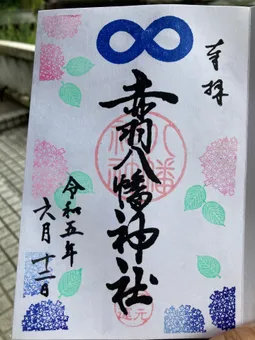 奉拝
赤羽八幡神社
令和五年
六月十二日